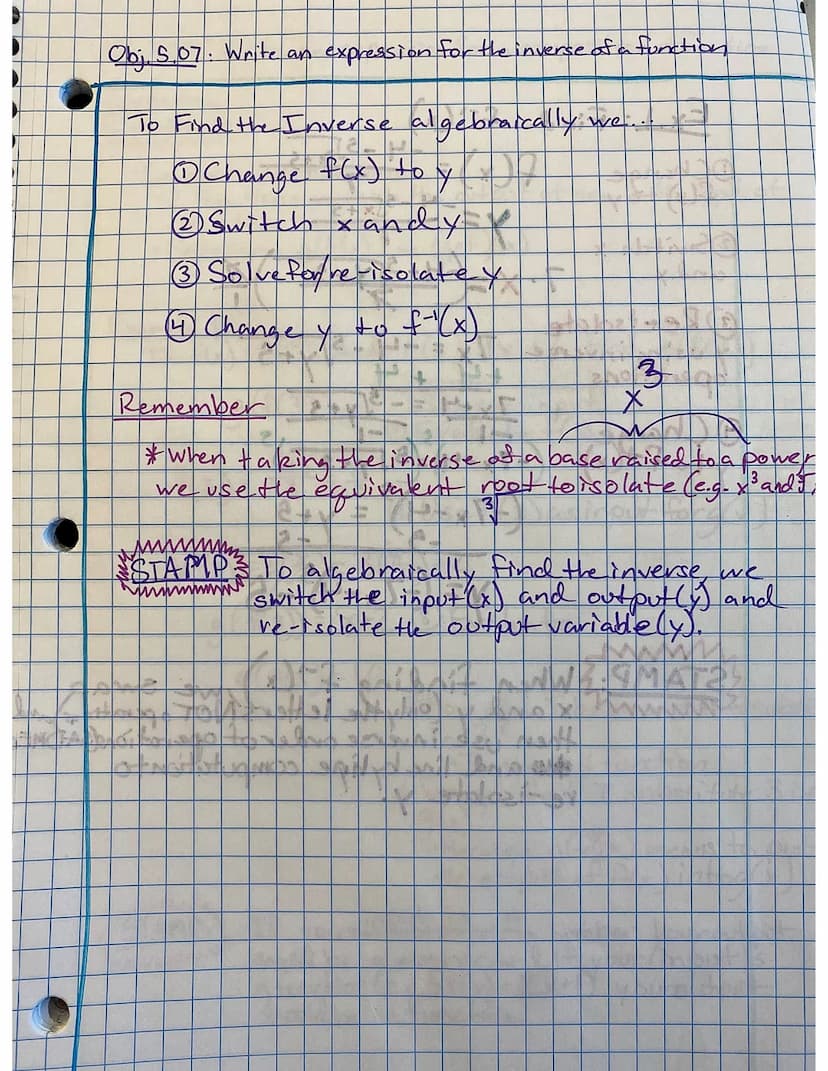 Obj. S.07: Write an expression for the inverse of a function
To Find the Inverse algebraically we...
① Change f(x) to y
② Switch x and y
③ Solve for/re-isolate y
④ Change y to f⁻¹(x)
x³
Remember
* When taking the inverse of a base raised to a power
we use the equivalent root to isolate (e.g. x³ and
³√
STAMP: To algebraically find the inverse, we
switch the input (x) and output (y) and
re-isolate the output variable (y).